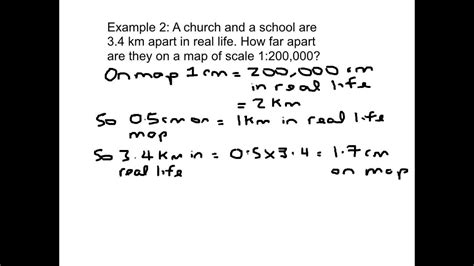 Example 2: A church and a school are
3.4 km apart in real life. How far apart
are they on a map of scale 1:200,000?
On map 1cm = 200,000 cm
in real life
= 2 km
So 0.5cm on = 1km in real life
map
So 3.4 km in = 0.5x3.4 = 1.7cm
real life on map